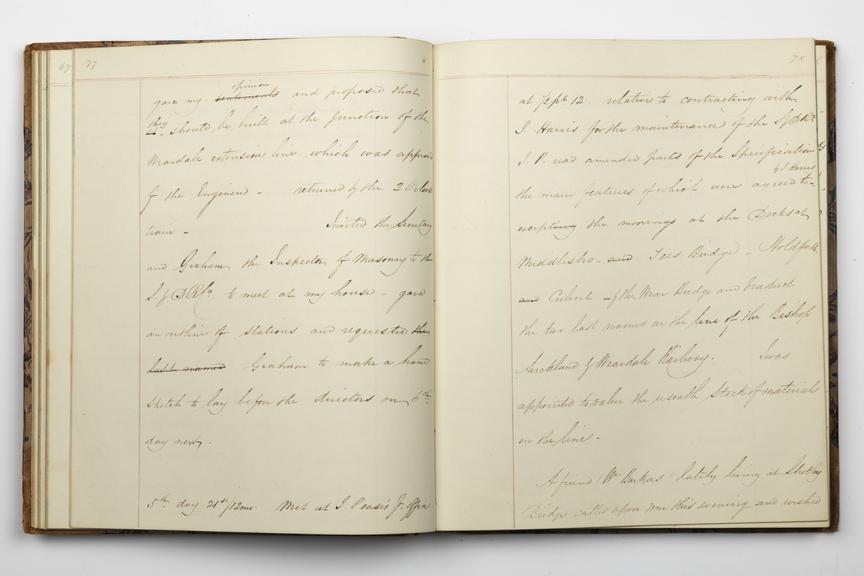 67
77
gave my statements opinion and proposed that
they should be built at the junction of the
Weardale extension line which was approved
of the Engineer - returned by the 2 O Clock
train - Invited the Secretary
and Graham, the Inspector of Masonry to the
S. & D R Co. to meet at my house - gave
an outline of stations and requested the
last named Graham to make a hand
sketch to lay before the directors on 6th
day next.
5th day 21st/12mo. Met at J. Pease's Jr. Office
78
at pt 12 relative to contracting with
J. Harris for the maintenance of the S & D Ry
J. P. read amended parts of the Specification
the main features of which were agreed to by J Harris -
excepting the moorings at the Docks at
Middlesbro - and Tees Bridge - Holdforth
and Culvert - of the Wear Bridge and Viaduct
the two last named on the line of the Bishop
Auckland & Weardale Railway. I was
appointed to value the useable Stock of materials
on the line -
A friend Wm Barkas lately living at Shotley
Bridge called upon me this evening and wished